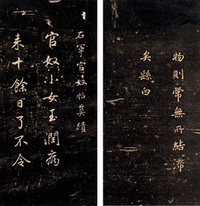 物則常無所結滯
矣孫白
右軍官奴帖真蹟
官奴小女玉潤病
来十餘日了不令